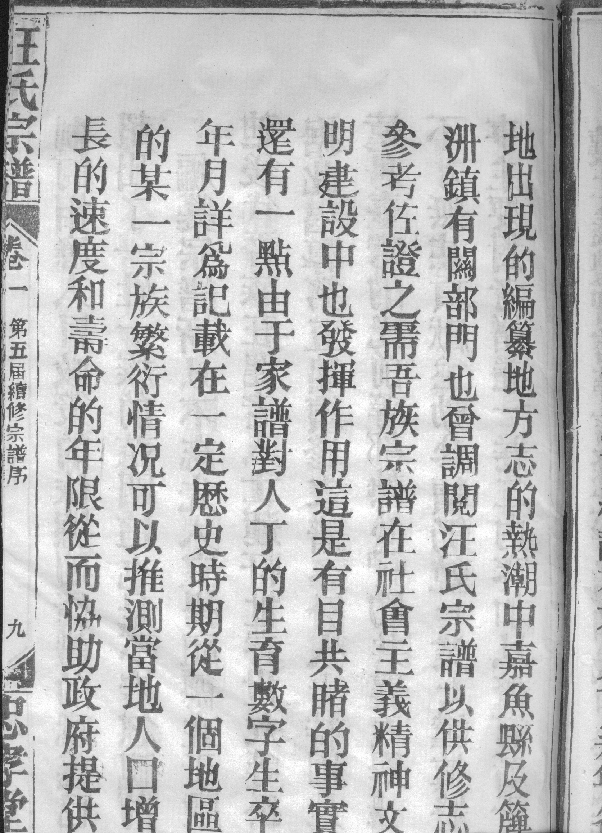 地出現的編纂地方志的熱潮中嘉魚縣及簰
洲鎮有關部門也曾調閱汪氏宗譜以供修志
參考佐證之需吾族宗譜在社會主義精神文
明建設中也發揮作用這是有目共睹的事實
還有一點由于家譜對人丁的生育數字生卒
年月詳爲記載在一定歷史時期從一個地區
的某一宗族繁衍情況可以推測當地人口增
長的速度和壽命的年限從而恊助政府提供
汪氏宗譜 卷一 第五屆續修宗譜序 九 忠孝堂